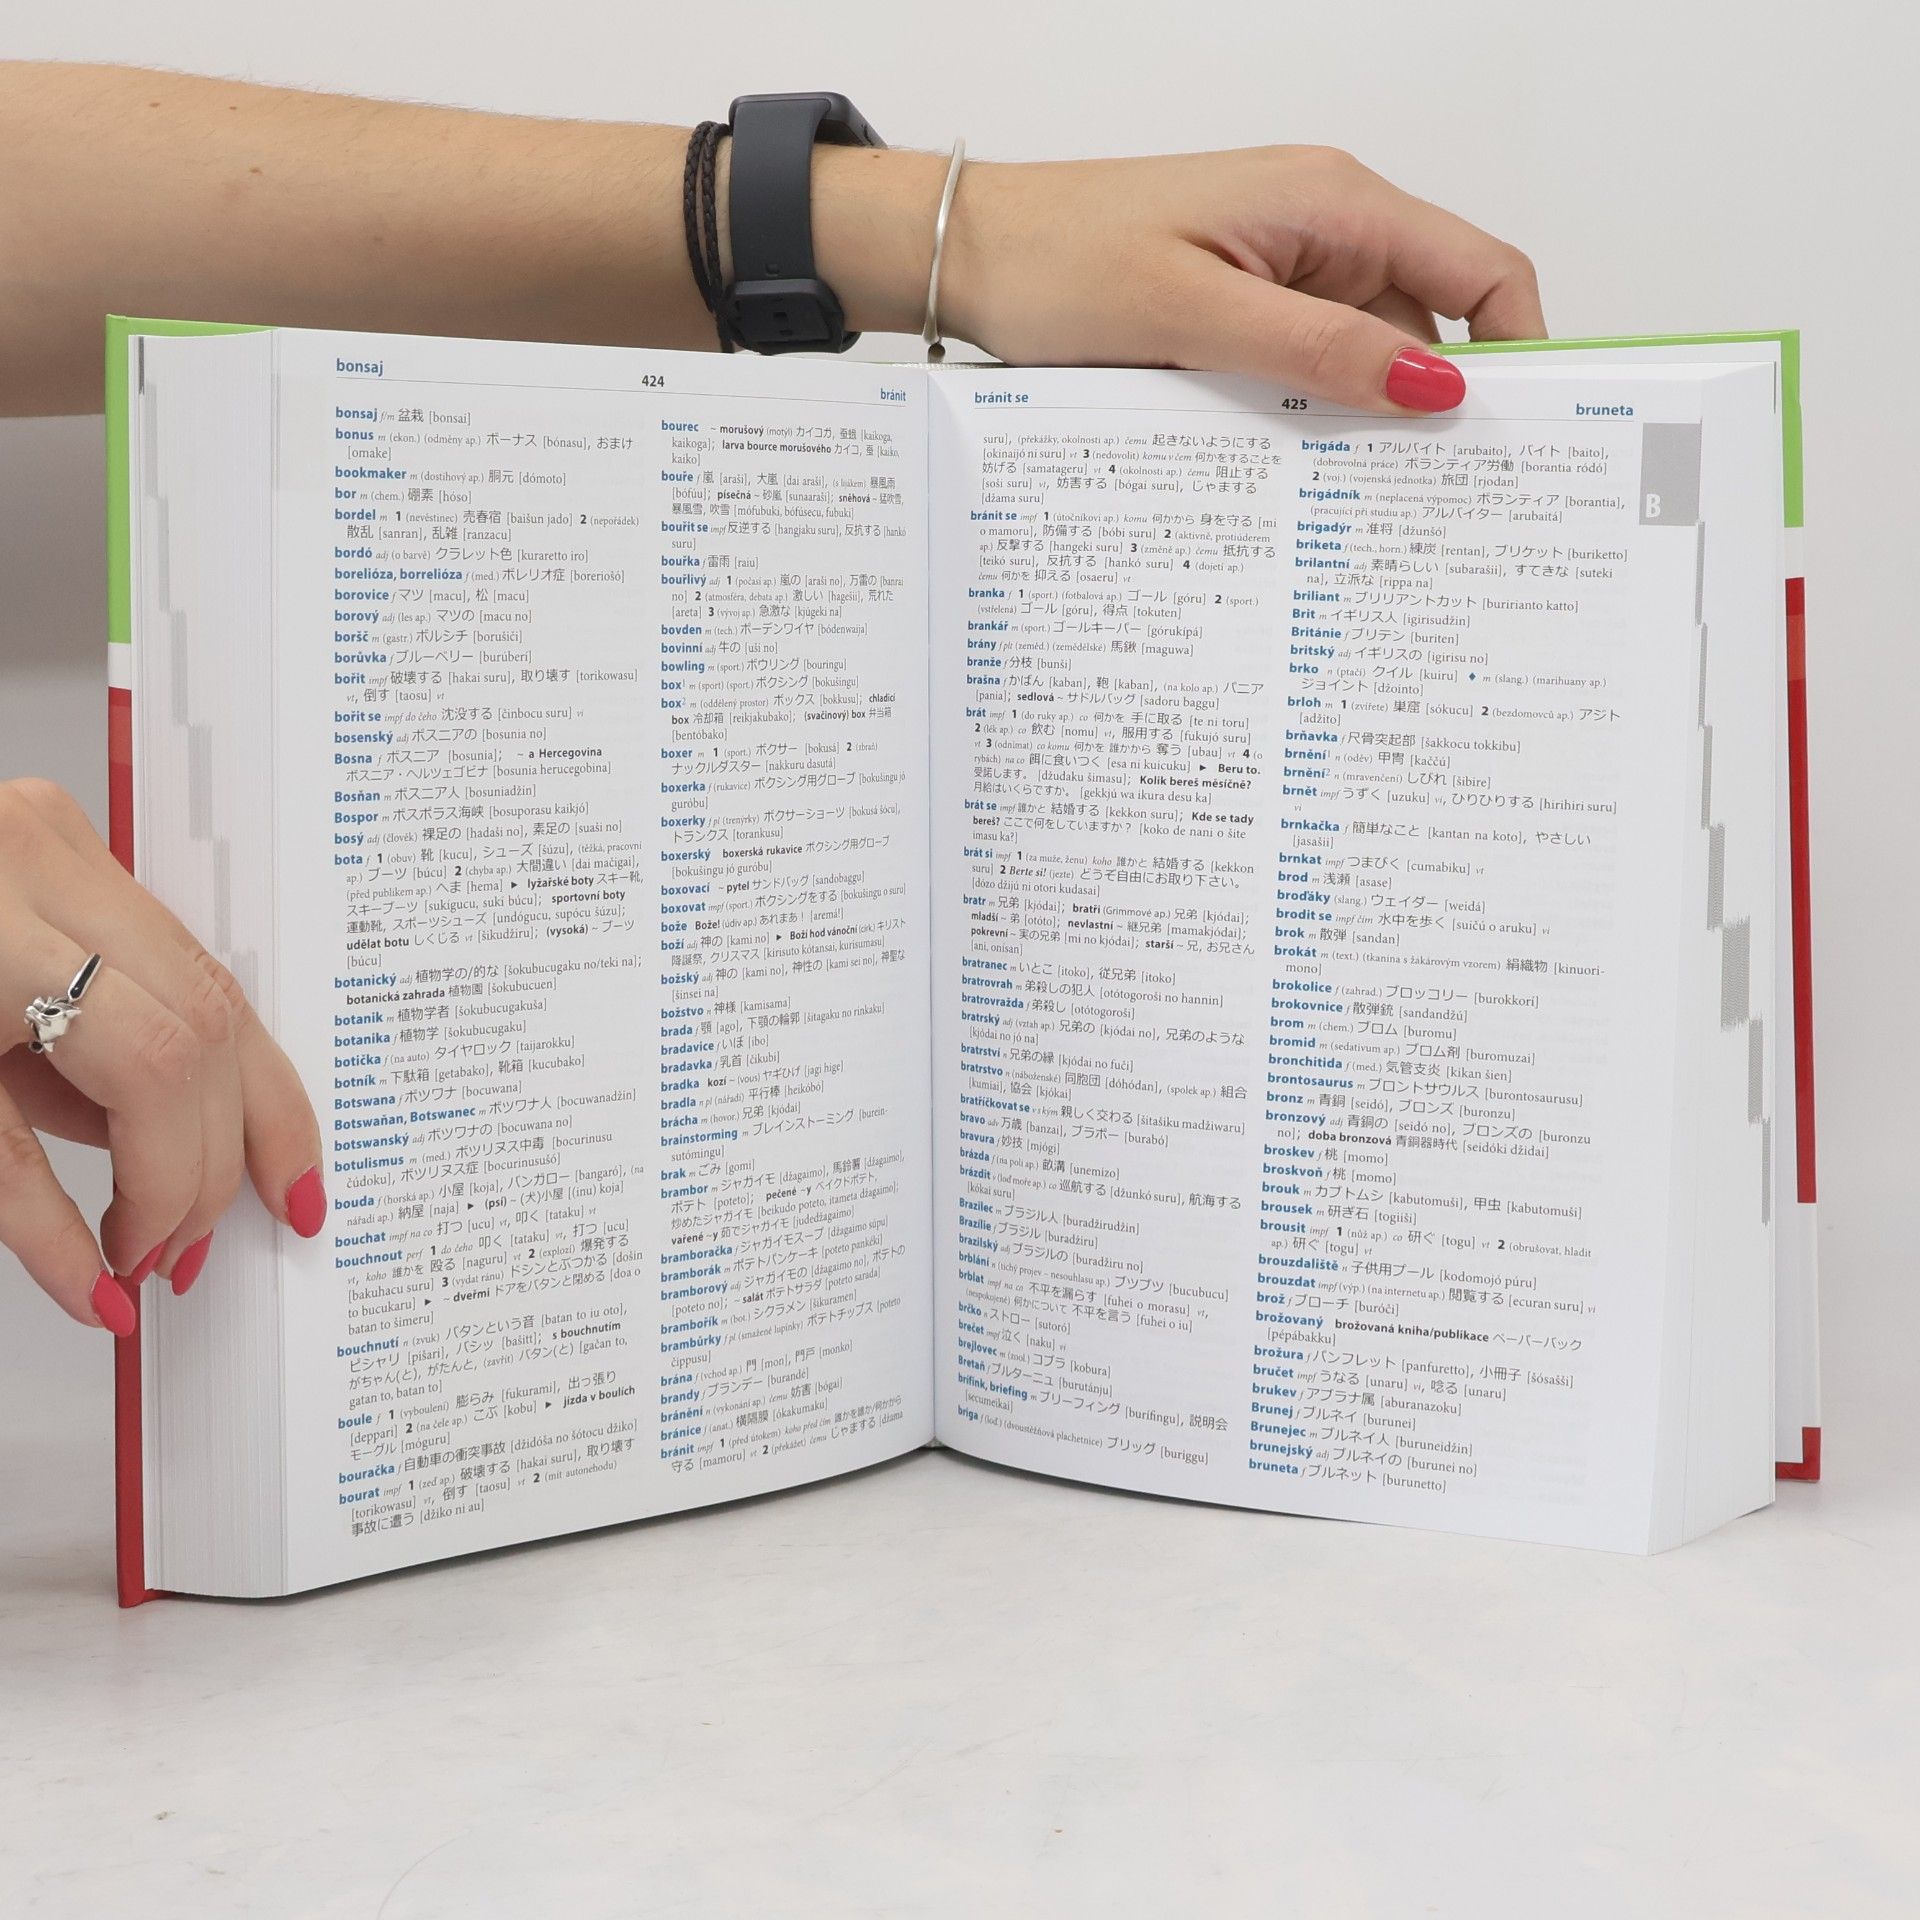 bonsaj
424
bránit
bonsaj f/m 盆栽 [bonsai]
bonus m (ekon.) (odměny ap.) ボーナス [bónasu], おまけ
[omake]
bookmaker m (dostihový ap.) 胴元 [dómoto]
bor m (chem.) 硼素 [hóso]
bordel m 1 (nevěstinec) 売春宿 [baišun jado] 2 (nepořádek)
散乱 [sanran], 乱雑 [ranzacu]
bordó adj (o barvě) クラレット色 [kuraretto iro]
borelióza, borrelióza f (med.) ボレリオ症 [boreriošó]
borovice f マツ [macu], 松 [macu]
borový adj (les ap.) マツの [macu no]
boršč m (gastr.) ボルシチ [borušiči]
borůvka f ブルーベリー [burúberí]
bořit impf 破壊する [hakai suru], 取り壊す [torikowasu]
vt, 倒す [taosu] vt
bořit se impf do čeho 沈没する [činbocu suru] vi
bosenský adj ボスニアの [bosunia no]
Bosna f ボスニア [bosunia]; ~ a Hercegovina
ボスニア・ヘルツェゴビナ [bosunia herucegobina]
Bosňan m ボスニア人 [bosuniadžin]
Bospor m ボスポラス海峡 [bosuporasu kaikjó]
bosý adj (člověk) 裸足の [hadaši no], 素足の [suaši no]
bota f 1 (obuv) 靴 [kucu], シューズ [šúzu], (těžká, pracovní
ap.) ブーツ [búcu] 2 (chyba ap.) 大間違い [dai mačigai],
(před publikem ap.) へま [hema] ► lyžařské boty スキー靴,
スキーブーツ [sukígucu, sukí búcu]; sportovní boty
運動靴, スポーツシューズ [undógucu, supócu šúzu];
udělat botu しくじる vt [šikudžiru]; (vysoká) ~ ブーツ
[búcu]
botanický adj 植物学の/的な [šokubucugaku no/teki na];
botanická zahrada 植物園 [šokubucuen]
botanik m 植物学者 [šokubucugakuša]
botanika f 植物学 [šokubucugaku]
botička f (na auto) タイヤロック [taijarokku]
botník m 下駄箱 [getabako], 靴箱 [kucubako]
Botswana f ボツワナ [bocuwana]
Botswaňan, Botswanec m ボツワナ人 [bocuwanadžin]
botswanský adj ボツワナの [bocuwana no]
botulismus m (med.) ボツリヌス中毒 [bocurinusu
čúdoku], ボツリヌス症 [bocurinusušó]
bouda f (horská ap.) 小屋 [koja], バンガロー [bangaró], (na
nářadí ap.) 納屋 [naja] ► (psí) ~ (犬)小屋 [(inu) koja]
bouchat impf na co 打つ [ucu] vt, 叩く [tataku] vt
bouchnout perf 1 do čeho 叩く [tataku] vt, 打つ [ucu]
vt, koho 誰かを 殴る [naguru] vt 2 (explozí) 爆発する
[bakuhacu suru] 3 (vydat ránu) ドシンとぶつかる [došin
to bucukaru] ► ~ dveřmi ドアをバタンと閉める [doa o
batan to šimeru]
bouchnutí n (zvuk) バタンという音 [batan to iu oto],
ピシャリ [pišari], バシッ [bašitt]; s bouchnutím
がちゃん(と), がたんと, (zavřít) バタン(と) [gačan to,
gatan to, batan to]
boule f 1 (vyboulení) 膨らみ [fukurami], 出っ張り
[deppari] 2 (na čele ap.) こぶ [kobu] ► jízda v boulích
モーグル [móguru]
bouračka f 自動車の衝突事故 [džidóša no šótocu džiko]
bourat impf 1 (zeď ap.) 破壊する [hakai suru], 取り壊す
[torikowasu] vt, 倒す [taosu] vt 2 (mít autonehodu)
事故に遭う [džiko ni au]
bourec ~ morušový (motýl) カイコガ, 蚕蛾 [kaikoga,
kaikoga]; larva bource morušového カイコ, 蚕 [kaiko,
kaiko]
bouře f 嵐 [araši], 大嵐 [dai araši], (s lijákem) 暴風雨
[bófúu]; písečná ~ 砂嵐 [sunaaraši]; sněhová ~ 猛吹雪,
暴風雪, 吹雪 [mófubuki, bófúsecu, fubuki]
bouřit se impf 反逆する [hangjaku suru], 反抗する [hankó
suru]
bouřka f 雷雨 [raiu]
bouřlivý adj 1 (počasí ap.) 嵐の [araši no], 万雷の [banrai
no] 2 (atmosféra, debata ap.) 激しい [hagešii], 荒れた
[areta] 3 (vývoj ap.) 急激な [kjúgeki na]
bovden m (tech.) ボーデンワイヤ [bódenwaija]
bovinní adj 牛の [uši no]
bowling m (sport.) ボウリング [bouringu]
box¹ m (sport) (sport.) ボクシング [bokušingu]
box² m (oddělený prostor) ボックス [bokkusu]; chladicí
box 冷却箱 [reikjakubako]; (svačinový) box 弁当箱
[bentóbako]
boxer m 1 (sport.) ボクサー [bokusá] 2 (zbraň)
ナックルダスター [nakkuru dasutá]
boxerka f (rukavice) ボクシング用グローブ [bokušingu jó
guróbu]
boxerky f pl (trenýrky) ボクサーショーツ [bokusá šócu],
トランクス [torankusu]
boxerský boxerská rukavice ボクシング用グローブ
[bokušingu jó guróbu]
boxovací ~ pytel サンドバッグ [sandobaggu]
boxovat impf (sport.) ボクシングをする [bokušingu o suru]
bože Bože! (údiv ap.) あれまあ! [aremá!]
boží adj 神の [kami no] ► Boží hod vánoční (círk.) キリスト
降誕祭, クリスマス [kirisuto kótansai, kurisumasu]
božský adj 神の [kami no], 神性の [kami sei no], 神聖な
[šinsei na]
božstvo n 神様 [kamisama]
brada f 顎 [ago], 下顎の輪郭 [šitagaku no rinkaku]
bradavice f いぼ [ibo]
bradavka f 乳首 [čikubi]
bradka kozí ~ (vous) ヤギひげ [jagi hige]
bradla n pl (nářadí) 平行棒 [heikóbó]
brácha m (hovor.) 兄弟 [kjódai]
brainstorming m ブレインストーミング [burein-
sutómingu]
brak m ごみ [gomi]
brambor m ジャガイモ [džagaimo], 馬鈴薯 [džagaimo],
ポテト [poteto]; pečené ~y ベイクドポテト,
炒めたジャガイモ [beikudo poteto, itameta džagaimo];
vařené ~y 茹でジャガイモ [judedžagaimo]
bramboračka f ジャガイモスープ [džagaimo súpu]
bramborák m ポテトパンケーキ [poteto pankéki]
bramborový adj ジャガイモの [džagaimo no], ポテトの
[poteto no]; ~ salát ポテトサラダ [poteto sarada]
brambořík m (bot.) シクラメン [šikuramen]
brambůrky f pl (smažené lupínky) ポテトチップス [poteto
čippusu]
brána f (vchod ap.) 門 [mon], 門戸 [monko]
brandy f ブランデー [burandé]
bránění n (vykonání ap.) čemu 妨害 [bógai]
bránice f (anat.) 横隔膜 [ókakumaku]
bránit impf 1 (před útokem) koho před čím 誰かを誰か/何かから
守る [mamoru] vt 2 (překážet) čemu じゃまする [džama
bránit se
425
bruneta
suru], (překážky, okolnosti ap.) čemu 起きないようにする
[okinaijó ni suru] vt 3 (nedovolit) komu v čem 何かをすることを
妨げる [samatageru] vt 4 (okolnosti ap.) čemu 阻止する
[soši suru] vt, 妨害する [bógai suru], じゃまする
[džama suru]
bránit se impf 1 (útočníkovi ap.) komu 何かから 身を守る [mi
o mamoru], 防備する [bóbi suru] 2 (aktivně, protiúderem
ap.) 反撃する [hangeki suru] 3 (změně ap.) čemu 抵抗する
[teikó suru], 反抗する [hankó suru] 4 (dojetí ap.)
čemu 何かを 抑える [osaeru] vt
branka f 1 (sport.) (fotbalová ap.) ゴール [góru] 2 (sport.)
(vstřelená) ゴール [góru], 得点 [tokuten]
brankář m (sport.) ゴールキーパー [górukípá]
brány f plt (zeměd.) (zemědělské) 馬鍬 [maguwa]
branže f 分枝 [bunši]
brašna f かばん [kaban], 鞄 [kaban], (na kolo ap.) パニア
[pania]; sedlová ~ サドルバッグ [sadoru baggu]
brát impf 1 (do ruky ap.) co 何かを 手に取る [te ni toru]
2 (lék ap.) 飲む [nomu] vt, 服用する [fukujó suru]
vt 3 (odnímat) co komu 何かを 誰かから 奪う [ubau] vt 4 (o
rybách) na co 餌に食いつく [esa ni kuicuku] ► Beru to.
受諾します。 [džudaku šimasu]; Kolik bereš měsíčně?
月給はいくらですか。 [gekkjú wa ikura desu ka]
brát se impf 誰かと 結婚する [kekkon suru]; Kde se tady
bereš? ここで何をしていますか? [koko de nani o šite
imasu ka?]
brát si impf 1 (za muže, ženu) koho 誰かと 結婚する [kekkon
suru] 2 Berte si! (jezte) どうぞ自由にお取り下さい。
[dózo džijú ni otori kudasai]
bratr m 兄弟 [kjódai]; bratři (Grimmové ap.) 兄弟 [kjódai];
mladší ~ 弟 [otóto]; nevlastní ~ 継兄弟 [mamakjódai];
pokrevní ~ 実の兄弟 [mi no kjódai]; starší ~ 兄, お兄さん
[ani, onisan]
bratranec m いとこ [itoko], 従兄弟 [itoko]
bratrovrah m 弟殺しの犯人 [otótogoroši no hannin]
bratrovražda f 弟殺し [otótogoroši]
bratrský adj (vztah ap.) 兄弟の [kjódai no], 兄弟のような
[kjódai no jó na]
bratrství n 兄弟の縁 [kjódai no fuči]
bratrstvo n (náboženské) 同胞団 [dóhódan], (spolek ap.) 組合
[kumiai], 協会 [kjókai]
bratříčkovat se v s kým 親しく交わる [šitašiku madžiwaru]
bravo adv 万歳 [banzai], ブラボー [burabó]
bravura f 妙技 [mjógi]
brázda f (na poli ap.) 畝溝 [unemizo]
brázdit v (loď moře ap.) co 巡航する [džunkó suru], 航海する
[kókai suru]
Brazilec m ブラジル人 [buradžirudžin]
Brazílie f ブラジル [buradžiru]
brazilský adj ブラジルの [buradžiru no]
brblání n (tichý projev – nesouhlasu ap.) ブツブツ [bucubucu]
brblat impf na co 不平を漏らす [fuhei o morasu] vt,
(nespokojeně) 何かについて 不平を言う [fuhei o iu]
brčko n ストロー [sutoró]
brečet impf 泣く [naku] vi
brejlovec m (zool.) コブラ [kobura]
Bretaň f ブルターニュ [burutánju]
brífink, briefing m ブリーフィング [burífingu], 説明会
[secumeikai]
briga f (loď.) (dvoustěžňová plachetnice) ブリッグ [buriggu]
brigáda f 1 アルバイト [arubaito], バイト [baito],
(dobrovolná práce) ボランティア労働 [borantia ródó]
2 (voj.) (vojenská jednotka) 旅団 [rjodan]
brigádník m (neplacená výpomoc) ボランティア [borantia],
(pracující při studiu ap.) アルバイター [arubaitá]
brigadýr m 准将 [džunšó]
briketa f (tech., horn.) 練炭 [rentan], ブリケット [buriketto]
brilantní adj 素晴らしい [subarašii], すてきな [suteki
na], 立派な [rippa na]
briliant m ブリリアントカット [buririanto katto]
Brit m イギリス人 [igirisudžin]
Británie f ブリテン [buriten]
britský adj イギリスの [igirisu no]
brko n (ptačí) クイル [kuiru] ♦ m (slang.) (marihuany ap.)
ジョイント [džointo]
brloh m 1 (zvířete) 巣窟 [sókucu] 2 (bezdomovců ap.) アジト
[adžito]
brňavka f 尺骨突起部 [šakkocu tokkibu]
brnění¹ n (oděv) 甲冑 [kaččú]
brnění² n (mravenčení) しびれ [šibire]
brnět impf うずく [uzuku] vi, ひりひりする [hirihiri suru]
vi
brnkačka f 簡単なこと [kantan na koto], やさしい
[jasašii]
brnkat impf つまびく [cumabiku] vt
brod m 浅瀬 [asase]
broďáky (slang.) ウェイダー [weidá]
brodit se impf čím 水中を歩く [suičú o aruku] vi
brok m 散弾 [sandan]
brokát m (text.) (tkanina s žakárovým vzorem) 絹織物 [kinuori-
mono]
brokolice f (zahrad.) ブロッコリー [burokkorí]
brokovnice f 散弾銃 [sandandžú]
brom m (chem.) ブロム [buromu]
bromid m (sedativum ap.) ブロム剤 [buromuzai]
bronchitida f (med.) 気管支炎 [kikan šien]
brontosaurus m ブロントサウルス [burontosaurusu]
bronz m 青銅 [seidó], ブロンズ [buronzu]
bronzový adj 青銅の [seidó no], ブロンズの [buronzu
no]; doba bronzová 青銅器時代 [seidóki džidai]
broskev f 桃 [momo]
broskvoň f 桃 [momo]
brouk m カブトムシ [kabutomuši], 甲虫 [kabutomuši]
brousek m 研ぎ石 [togiiši]
brousit impf 1 (nůž ap.) co 研ぐ [togu] vt 2 (obrušovat, hladit
ap.) 研ぐ [togu] vt
brouzdaliště n 子供用プール [kodomojó púru]
brouzdat impf (výp.) (na internetu ap.) 閲覧する [ecuran suru] vi
brož f ブローチ [buróči]
brožovaný brožovaná kniha/publikace ペーパーバック
[pépábakku]
brožura f パンフレット [panfuretto], 小冊子 [šósašši]
bručet impf うなる [unaru] vi, 唸る [unaru]
brukev f アブラナ属 [aburanazoku]
Brunej f ブルネイ [burunei]
Brunejec m ブルネイ人 [buruneidžin]
brunejský adj ブルネイの [burunei no]
bruneta f ブルネット [burunetto]
B